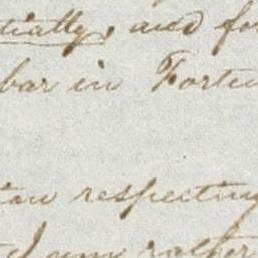 tially, and fo
bar in Fortu
ion respecting
I am rather